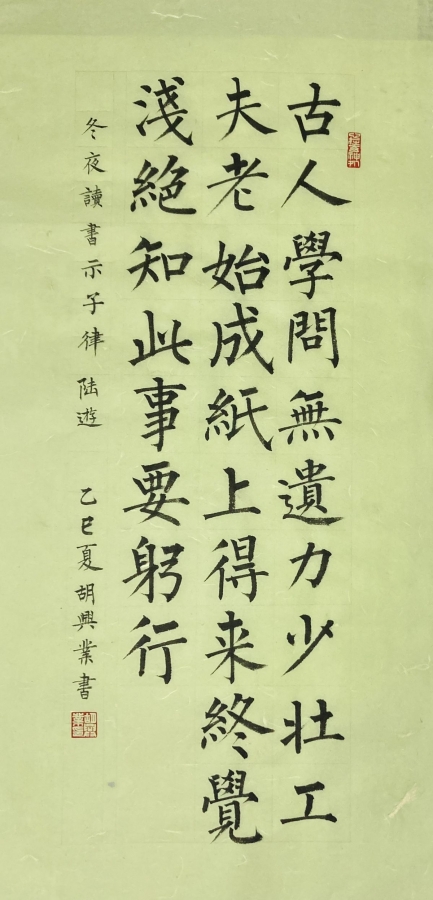 古人學問無遺力少壯工
夫老始成紙上得来終覺
淺絕知此事要躬行
冬夜讀書示子律 陸遊 乙巳夏胡興業書